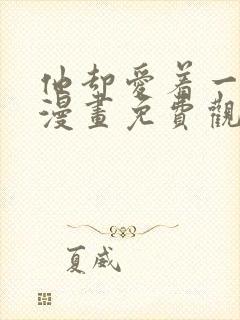 他却愛着一
漫畫免費觀
夏威